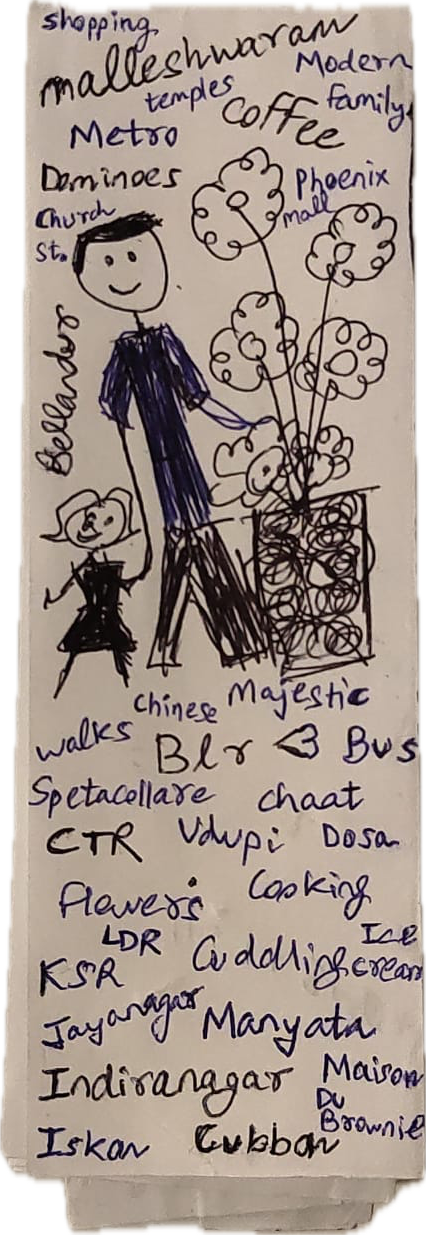 shopping
malleshwaram
Modern
family
temples
coffee
Metro
Dominoes
Phoenix
mall
Church
St.
Bellandur
Chinese
Majestic
walks
Blr <3 Bus
Spetacollare chaat
CTR Udupi Dosa
Flowers Cooking
LDR
Ice
cream
KSR
Cuddling
Jayanagar
Manyata
Indiranagar
Maison
Du
Brownie
Iskon Cubbon